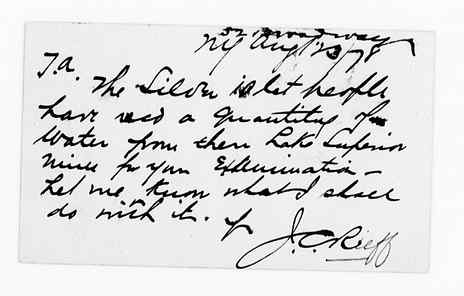 52 Broadway
NY Aug 1, 1878
T.a.
The Silver islet people
have recd a quantity of
Water from their Lake Superior
mine for your Examination –
Let me know what I shall
do with it. yr
J.C. Reiff